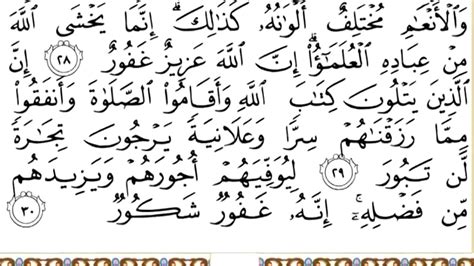 وَٱلْأَنْعَٰمِ مُخْتَلِفٌ أَلْوَٰنُهُۥ كَذَٰلِكَ ۗ إِنَّمَا يَخْشَى ٱللَّهَ
مِنْ عِبَادِهِ ٱلْعُلَمَٰٓؤُا۟ ۗ إِنَّ ٱللَّهَ عَزِيزٌ غَفُورٌ ٢٨ إِنَّ
ٱلَّذِينَ يَتْلُونَ كِتَٰبَ ٱللَّهِ وَأَقَامُوا۟ ٱلصَّلَوٰةَ وَأَنفَقُوا۟
مِمَّا رَزَقْنَٰهُمْ سِرًّا وَعَلَانِيَةً يَرْجُونَ تِجَٰرَةً
لَّن تَبُورَ ٢٩ لِيُوَفِّيَهُمْ أُجُورَهُمْ وَيَزِيدَهُم
مِّن فَضْلِهِۦٓ ۚ إِنَّهُۥ غَفُورٌ شَكُورٌ ٣٠